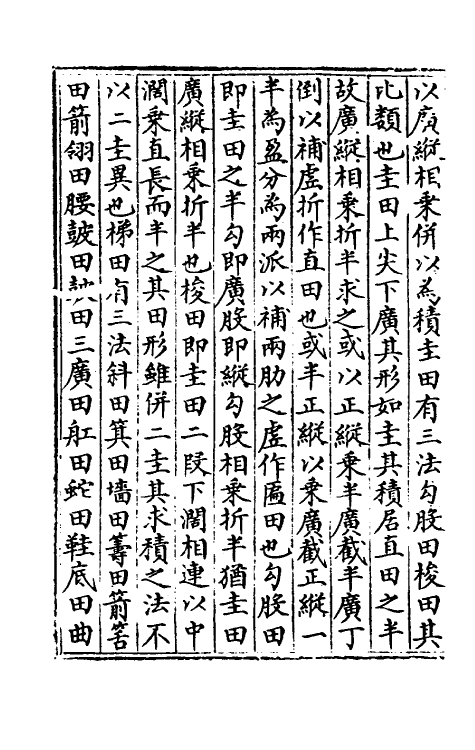 以廣縱相乘併以為積圭田有三法勾股田梭田其
此類也圭田上尖下廣其形如圭其積居直田之半
故廣縱相乘折半求之或以正縱乘半廣截半廣丁
倒以補虛折作直田也或半正縱以乘廣截正縱一
半為盈分為兩派以補兩肋之虛作匾田也勾股田
即圭田之半勾即廣股即縱勾股相乘折半猶圭田
廣縱相乘折半也梭田即圭田二段下濶相連以中
濶乘直長而半之其田形雖併二圭其求積之法不
以二圭異也梯田有三法斜田箕田墻田籌田箭筈
田箭翎田腰鼓田鼓田三廣田舡田蛇田鞋底田曲